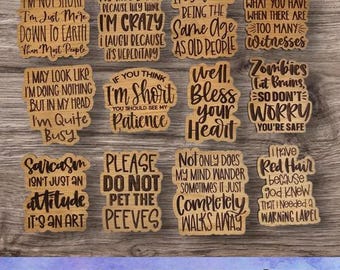 I'M NOT SHORT
I'm Just More
DOWN TO EARTH
Than Most People
I'M CRAZY
I LAUGH BECAUSE
IT'S HEREDITARY
BEING THE
Same Age
AS OLD PEOPLE
WHAT YOU HAVE
WHEN THERE ARE
TOO MANY
Witnesses
I MAY LOOK LIKE
I'M DOING NOTHING
BUT IN MY HEAD
I'm Quite
Busy
IF YOU THINK
I'm Short
YOU SHOULD SEE MY
Patience
Well
Bless
your
Heart
Zombies
Eat Brains,
SO DON'T
WORRY
YOU'RE SAFE
Sarcasm
ISN'T JUST AN
attitude
IT'S AN ART
PLEASE
DO NOT
PET THE
PEEVES
Not Only Does
MY MIND WANDER
SOMETIMES IT JUST
Completely
WALKS AWAY
I HAVE
Red Hair
because
GOD KNEW
THAT I NEEDED A
WARNING LABEL